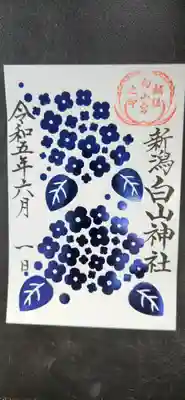 新潟白山神社
令和五年六月 一日